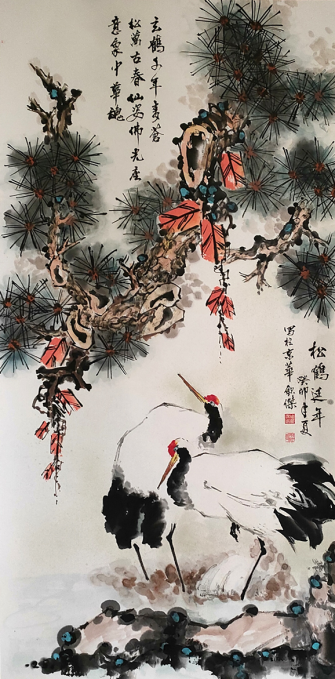 玄鶴千年壽蒼
松萬古春仙姿佛光座
意象中華魂
松鶴延年
癸卯年夏
寫於京華